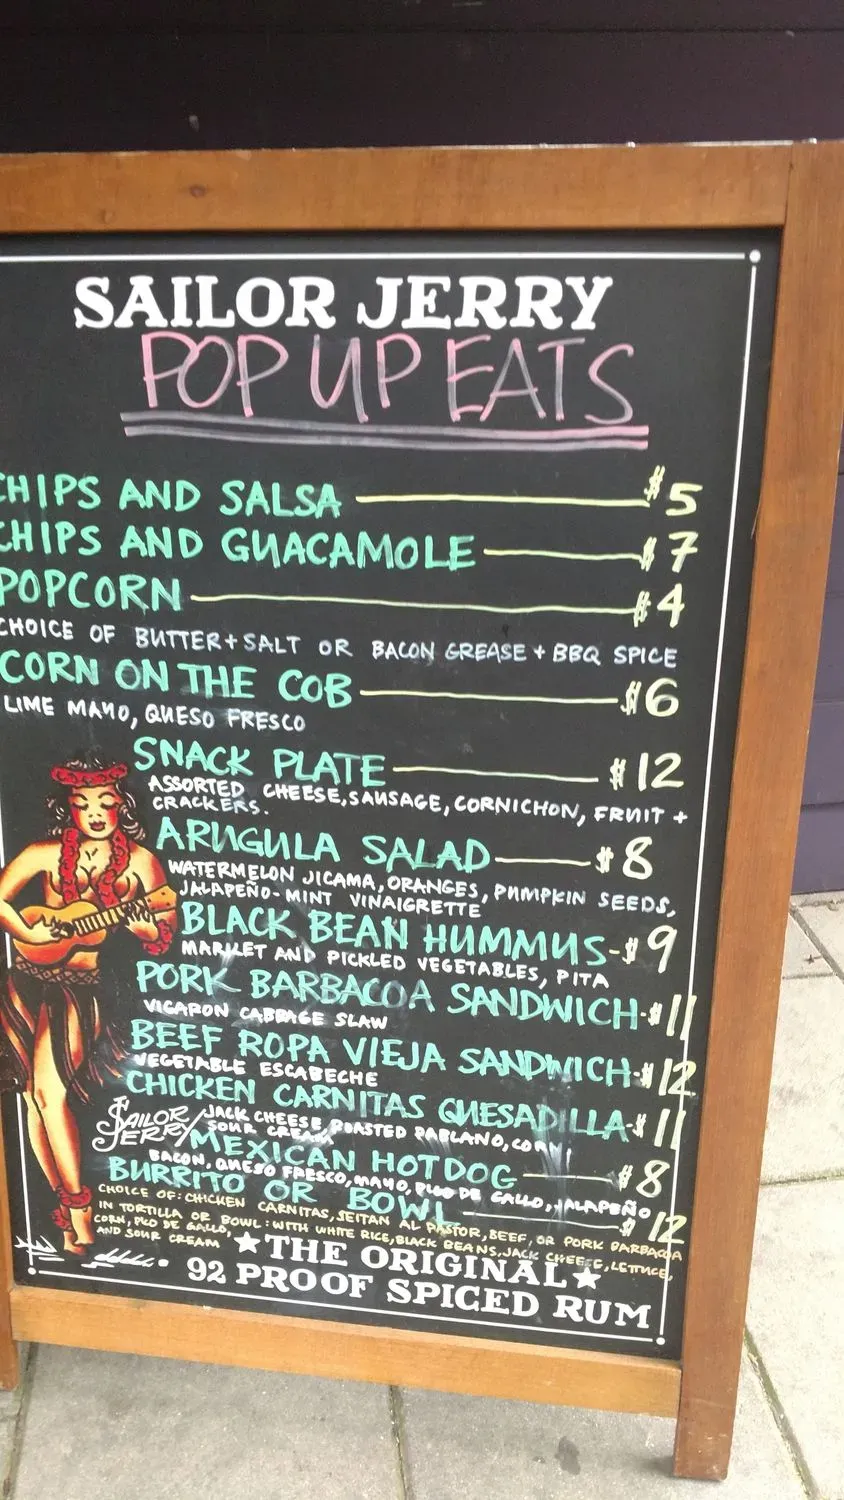 SAILOR JERRY
POP UP EATS
CHIPS AND SALSA $5
CHIPS AND GUACAMOLE $7
POPCORN $4
CHOICE OF BUTTER + SALT OR BACON GREASE + BBQ SPICE
CORN ON THE COB $6
LIME MAYO, QUESO FRESCO
SNACK PLATE $12
ASSORTED CHEESE, SAUSAGE, CORNICHON, FRUIT +
CRACKERS.
ARUGULA SALAD $8
WATERMELON JICAMA, ORANGES, PUMPKIN SEEDS,
JALAPEÑO-MINT VINAIGRETTE
BLACK BEAN HUMMUS-$9
MARKET AND PICKLED VEGETABLES, PITA
PORK BARBACOA SANDWICH-$11
VICARON CABBAGE SLAW
BEEF ROPA VIEJA SANDWICH-$12
VEGETABLE ESCABECHE
CHICKEN CARNITAS QUESADILLA-$11
JACK CHEESE, ROASTED POBLANO, CORN,
SOUR CREAM
SAILOR
JERRY
MEXICAN HOTDOG $8
BACON, QUESO FRESCO, MAYO, PICO DE GALLO, JALAPEÑO
BURRITO OR BOWL $12
CHOICE OF: CHICKEN CARNITAS, SEITAN AL PASTOR, BEEF, OR PORK BARBACOA
IN TORTILLA OR BOWL: WITH WHITE RICE, BLACK BEANS, JACK CHEESE, LETTUCE,
CORN, PICO DE GALLO,
AND SOUR CREAM
★THE ORIGINAL★
92 PROOF SPICED RUM